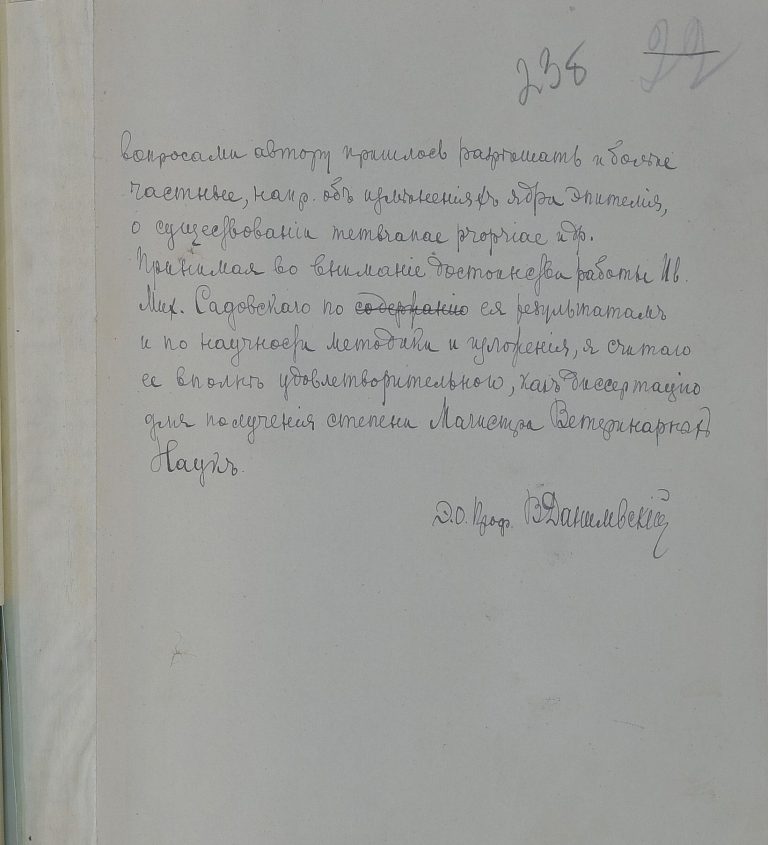 238 22
вопросами автору пришлось разрѣшать и болѣе
частные, напр. объ измѣненіяхъ ядра эпителія,
о существованіи membranae propriae и др.
Принимая во вниманіе достоинства работы Ив.
Мих. Садовскаго по содержанію ея результатамъ
и по научности методики и изложенія, я считаю
ее вполнѣ удовлетворительною, какъ диссертацію
для полученія степени Магистра Ветеринарныхъ
Наукъ.
Э.О. Проф. В Данилевскій